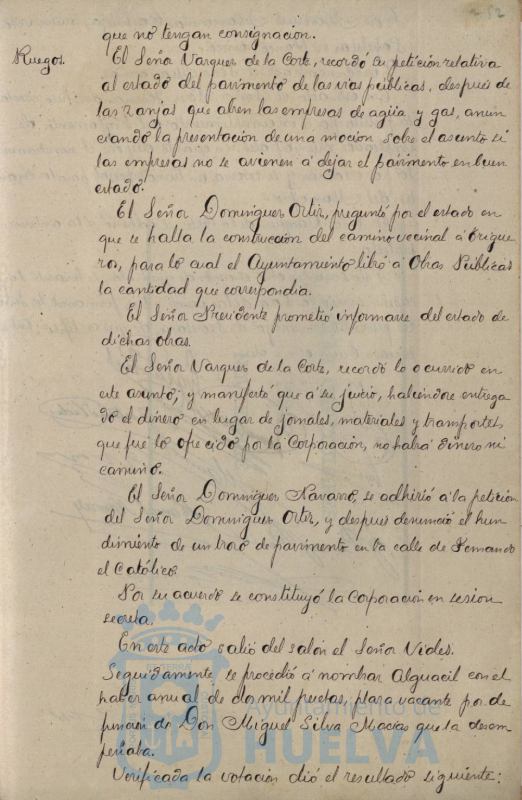 52
que no tengan consignacion.
Ruegos.
El Señor Vazquez de la Corte, recordó su petición relativa
al estado del pavimento de las vias públicas, después de
las zanjas que abren las empresas de agua y gas, anun
ciando la presentación de una moción sobre el asunto si
las empresas no se avienen á dejar el pavimento en buen
estado.
El Señor Dominguez Ortiz, preguntó por el estado en
que se halla la construcción del camino vecinal á Trigue
ros, para lo cual el Ayuntamiento libró á Obras Públicas
la cantidad que correspondía.
El Señor Presidente prometió informarse del estado de
dichas obras.
El Señor Vazquez de la Corte, recordó lo ocurrido en
este asunto; y manifestó que á su juicio, habiéndose entrega
do el dinero en lugar de jornales, materiales y transportes,
que fué lo ofrecido por la Corporación, no habrá dinero ni
camino.
El Señor Dominguez Navarro, se adhirió á la petición
del Señor Dominguez Ortiz, y después denunció el hun
dimiento de un trozo de pavimento en la calle de Fernando
el Católico.
Por su acuerdo se constituyó la Corporación en sesion
secreta.
En este acto salió del salón el Señor Vides.
Seguidamente se procedió á nombrar Alguacil con el
haber anual de dos mil pesetas, plaza vacante por de
función de Don Miguel Silva Macías que la desem
peñaba.
Verificada la votación dió el resultado siguiente:
Ayuntamiento de
HUELVA